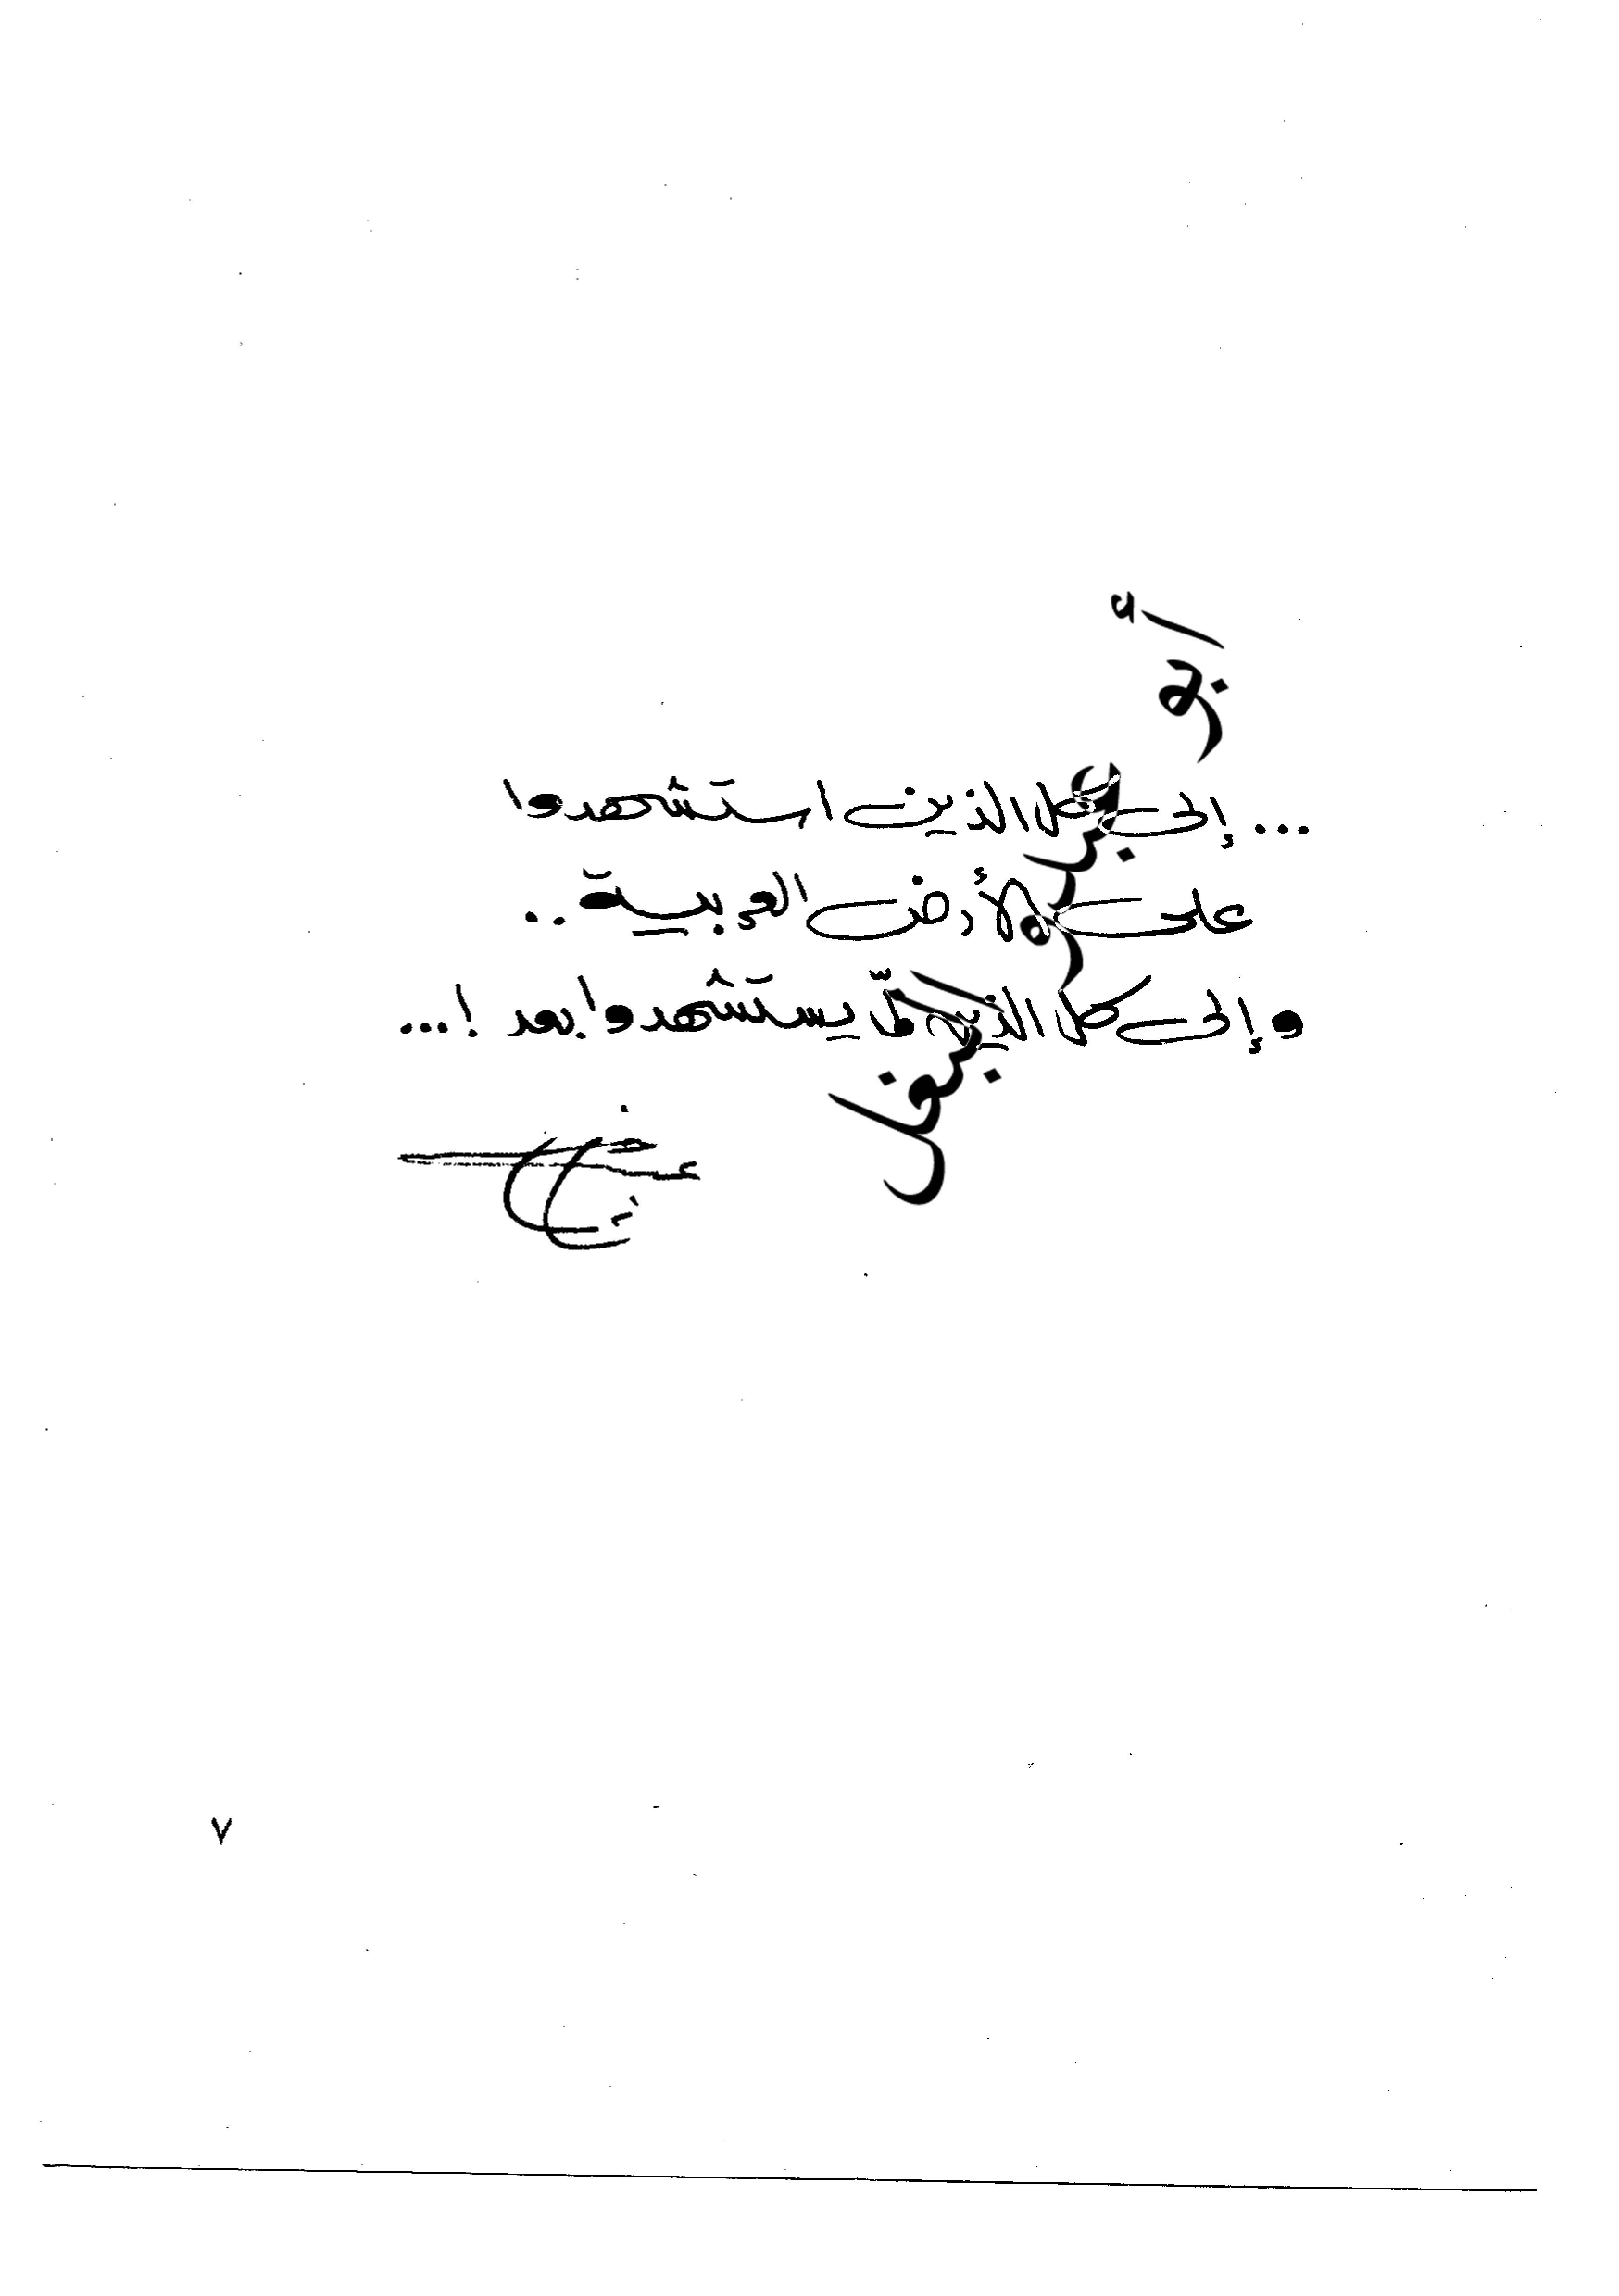 ... إلى كل الذين استشهدوا
على الأرض العربية ..
وإلى كل الذين لمّا يستشهدوا بعد !...
أبو عبدو البغل
٧